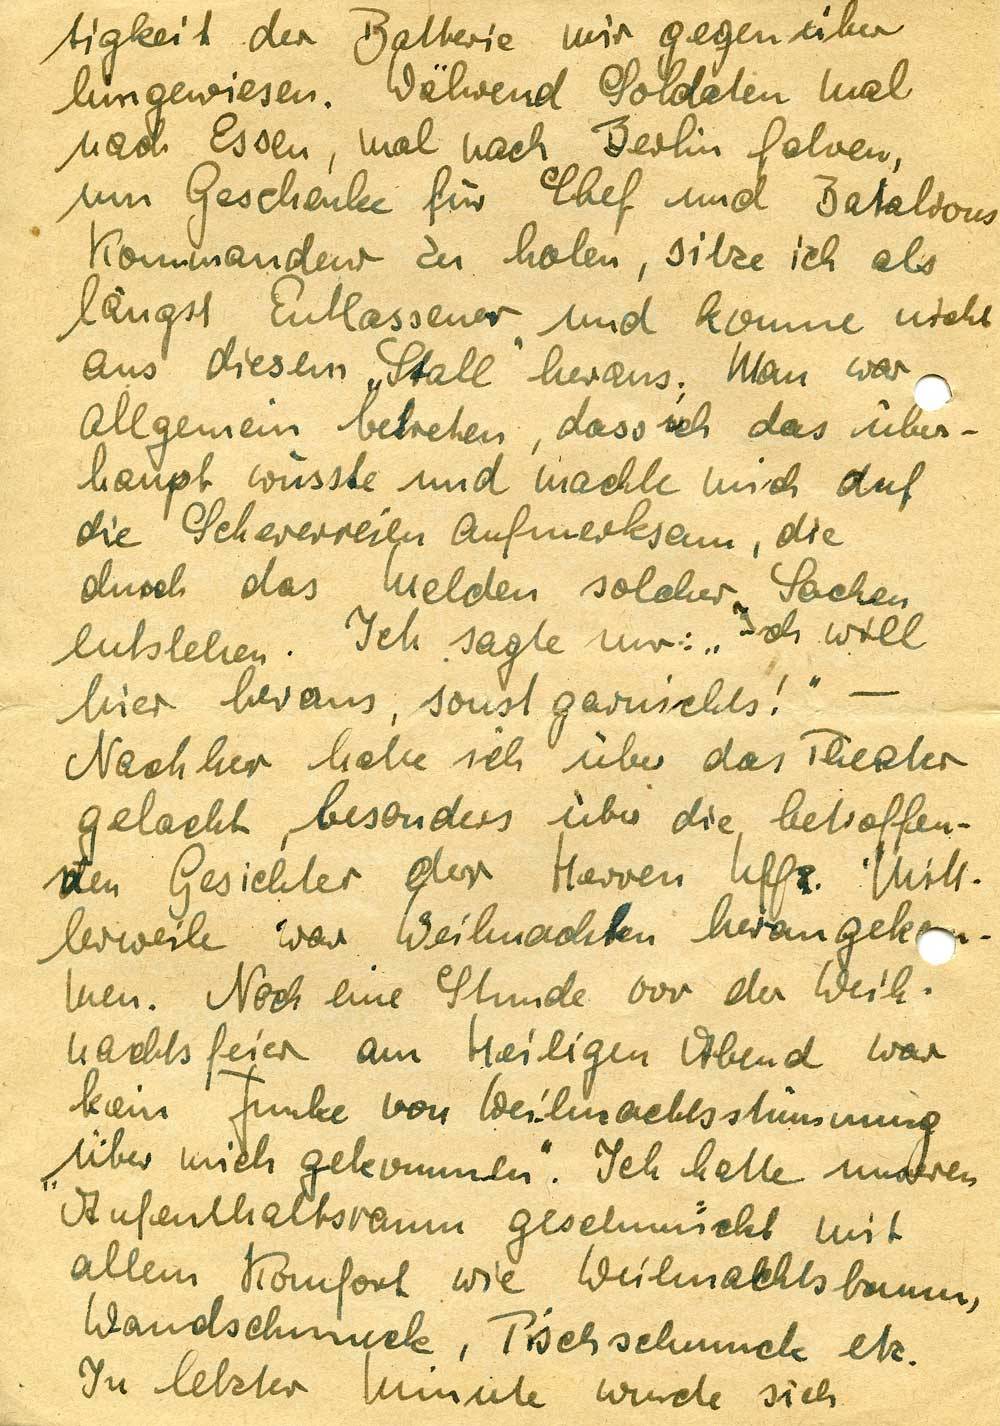 tigkeit der Batterie mir gegenüber
hingewiesen. Während Soldaten mal
nach Essen, mal nach Berlin fahren,
um Geschenke für Chef und Batalions
Kommandeur zu holen, sitze ich als
längst Entlassener und komme nicht
aus diesem „Stall" heraus. Man war
allgemein betreten, dass ich das über-
haupt wüsste und machte mich auf
die Scherereien aufmerksam, die
durch das Melden solcher Sachen
entstehen. Ich sagte nur: „Ich will
hier heraus, sonst garnichts!" —
Nachher habe ich über das Theater
gelacht, besonders über die betroffen-
den Gesichter der Herren Uffz. Mitt-
lerweile war Weihnachten herangekom-
men. Noch eine Stunde vor der Weih-
nachtsfeier am Heiligen Abend war
kein Funke von Weihnachtsstimmung
„über mich gekommen". Ich hatte unseren
Aufenthaltsraum geschmückt mit
allem Komfort wie Weihnachtsbaum,
Wandschmuck, Tischschmuck etc.
In letzter Minute wurde sich